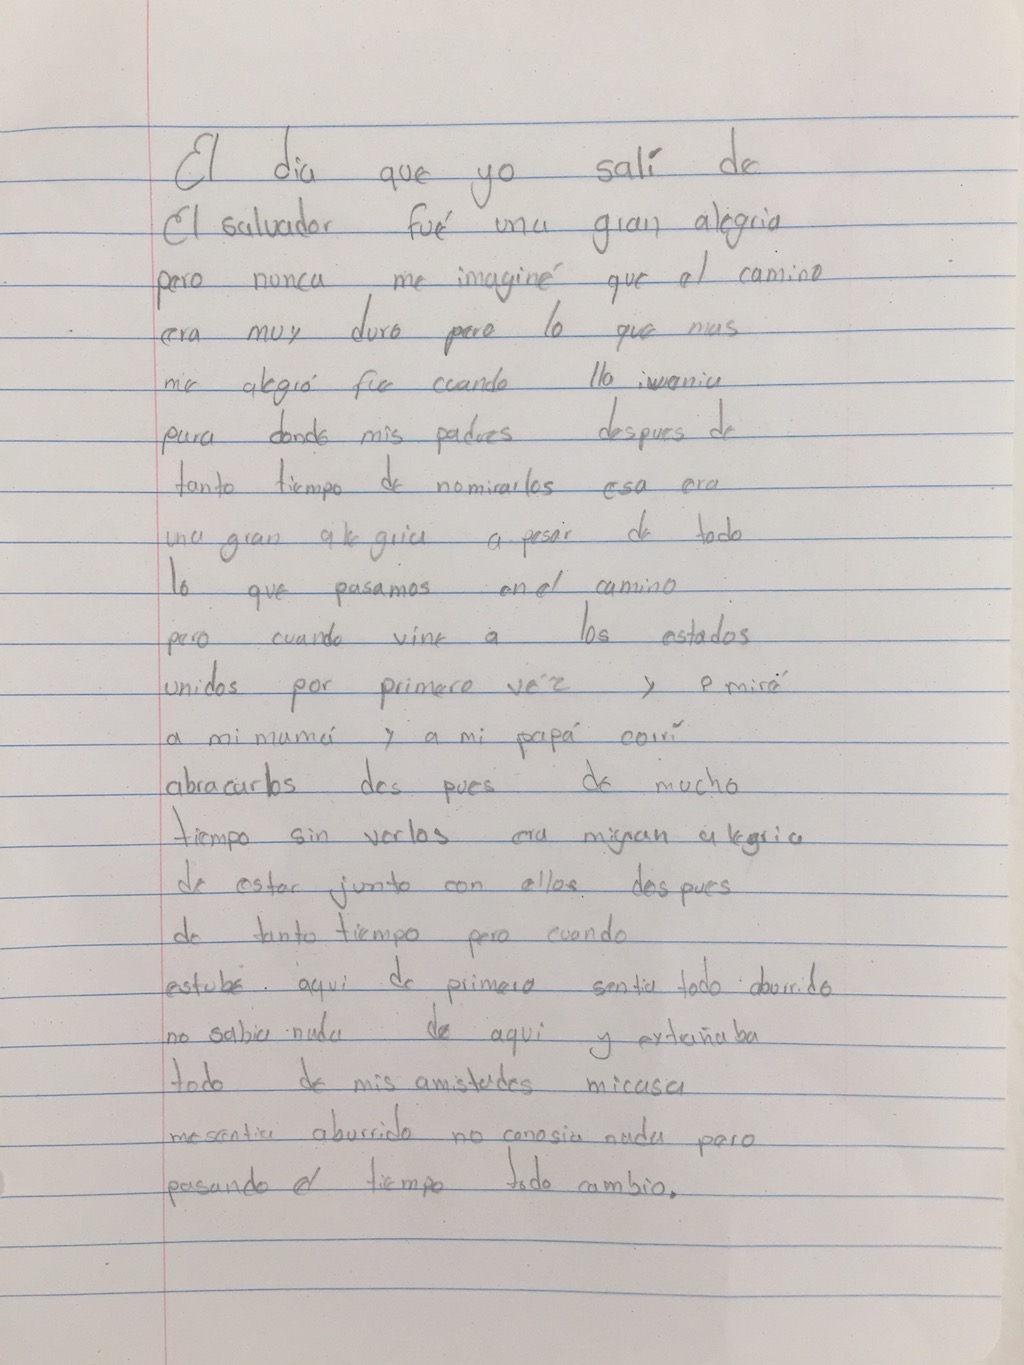 El dia que yo salí de
El salvador fué una gran alegria
pero nunca me imaginé que el camino
era muy duro pero lo que mas
me alegró fue cuando llo iwania
para donde mis padres despues de
tanto tiempo de nomirarlos esa era
una gran alegria a pesar de todo
lo que pasamos en el camino
pero cuando vine a los estados
unidos por primero véz y e miré
a mi mamá y a mi papá corrí
abracarlos des pues de mucho
tiempo sin verlos era migran alegria
de estar junto con ellos des pues
de tanto tiempo pero cuando
estube. aqui de primero sentia todo aburrido
no sabia nada de aqui y extrañaba
todo de mis amistades micasa
mesentia aburrido no conosia nada pero
pasando el tiempo todo cambio.